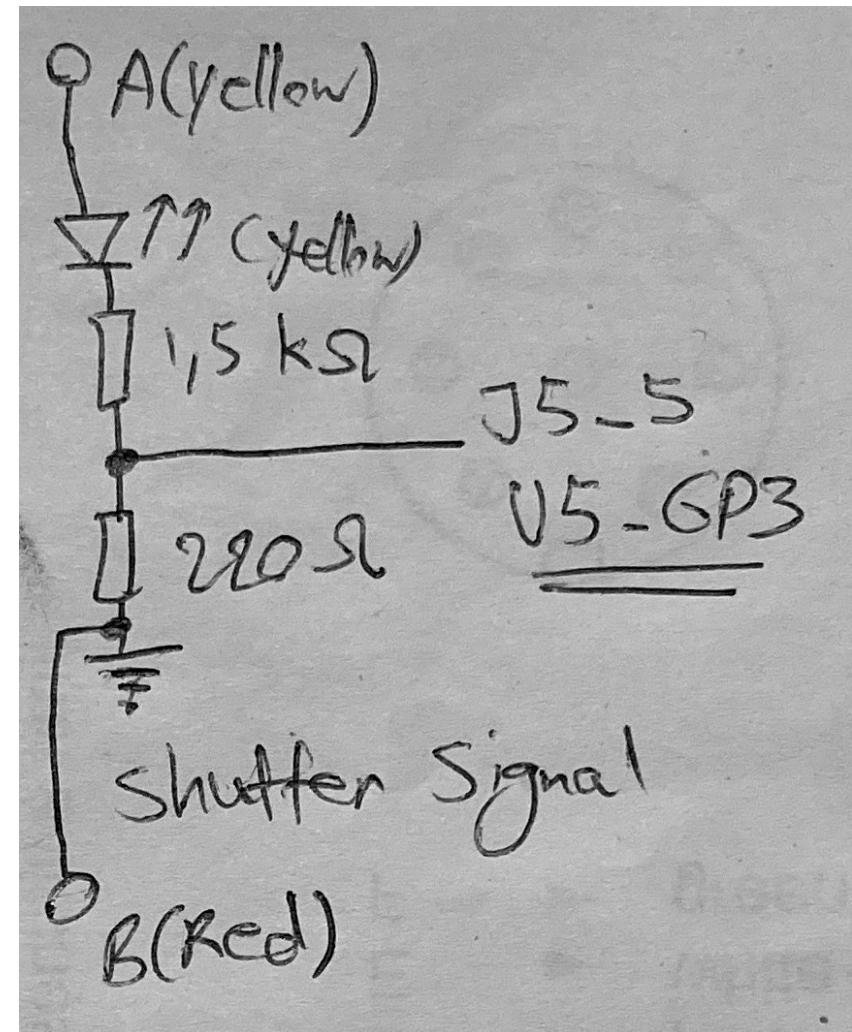 A(yellow)
(yellow)
1,5 kΩ
J5-5
U5-GP3
220 Ω
Shutter Signal
B(Red)